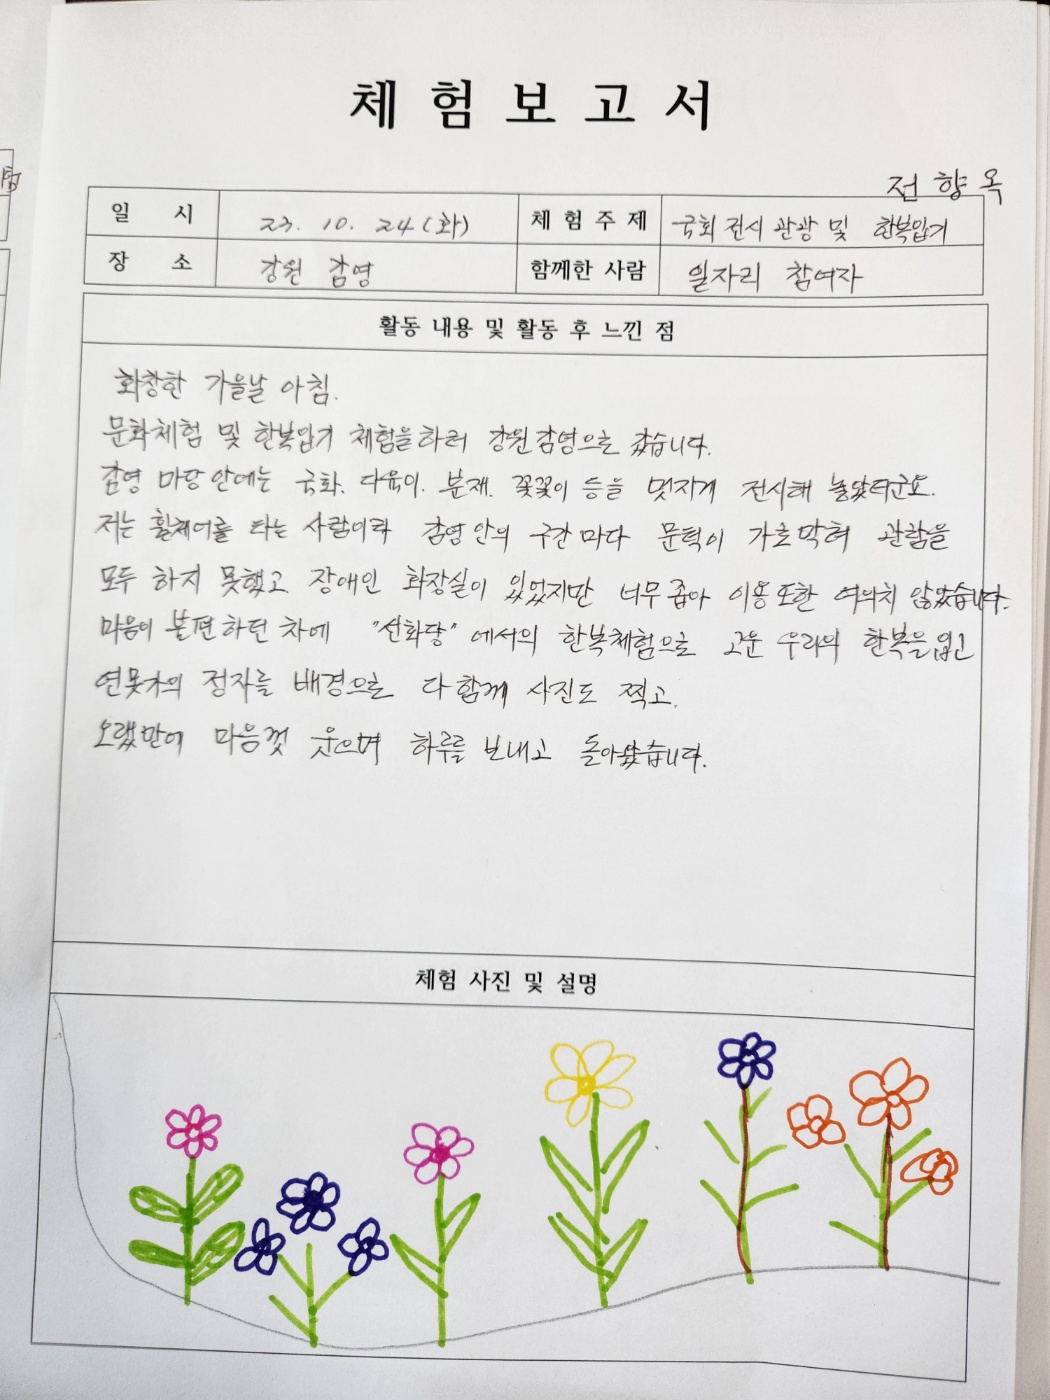 체험보고서
전향옥
일 시 23. 10. 24(화) 체험주제 국회 전시 관광 및 한복입기
장 소 강원 감영 함께한 사람 일자리 참여자
활동 내용 및 활동 후 느낀 점
화창한 가을날 아침.
문화체험 및 한복입기 체험을하러 강원감영으로 갔습니다.
감영 마당 안에는 국화. 다육이. 분재. 꽃꽂이 등을 멋지게 전시해 놓았더군요.
저는 휠체어를 타는 사람이라 감영안의 구간마다 문턱이 가로막혀 관람을
모두 하지 못했고 장애인 화장실이 있었지만 너무 좁아 이용 또한 여의치 않았습니다.
마음이 불편하던 차에 "선화당" 에서의 한복체험으로 고운 우리의 한복을 입고
연못가의 정자를 배경으로 다함께 사진도 찍고.
오랬만에 마음껏 웃으며 하루를 보내고 돌아왔습니다.
체험 사진 및 설명